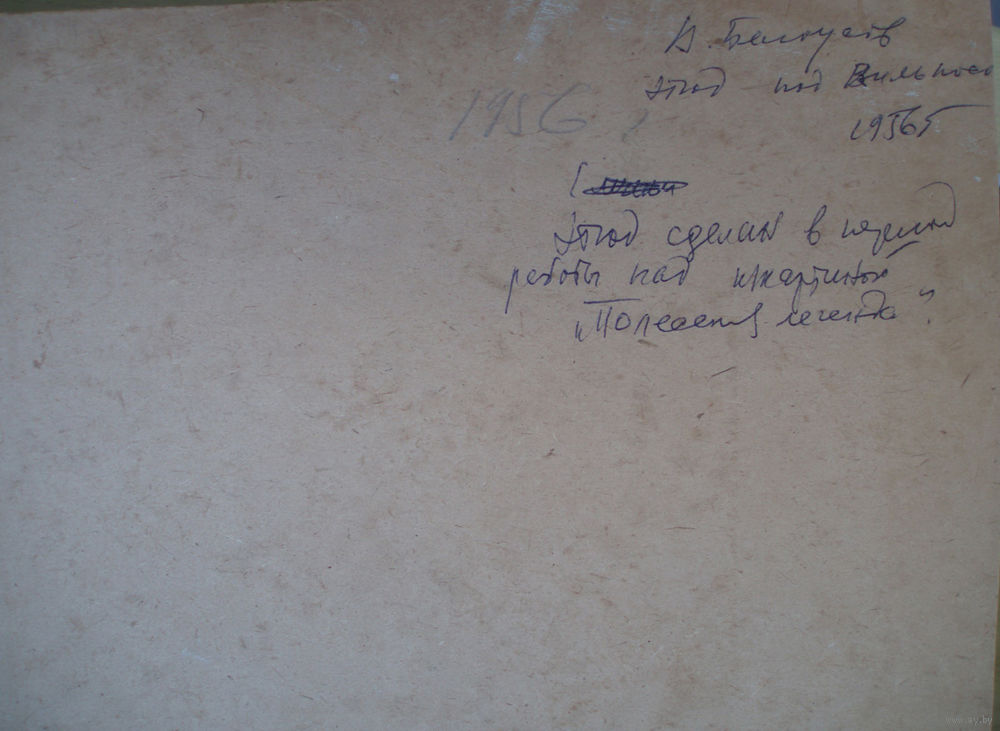 Н. Белоусов
этюд под Вильнюсо
1956 г
1956 г
(
Этюд сделан в период
работы над к/картиной
"Полесская легенда"
www.ay.by